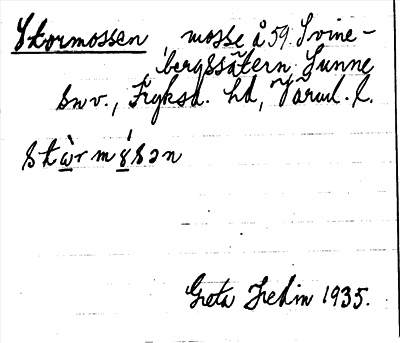 Stormossen, mosse å 59. Svine-
bergssätern. Sunne
snv., Fryksd. hd, Värml. l.
stòrmósən
Greta Hedin 1935.